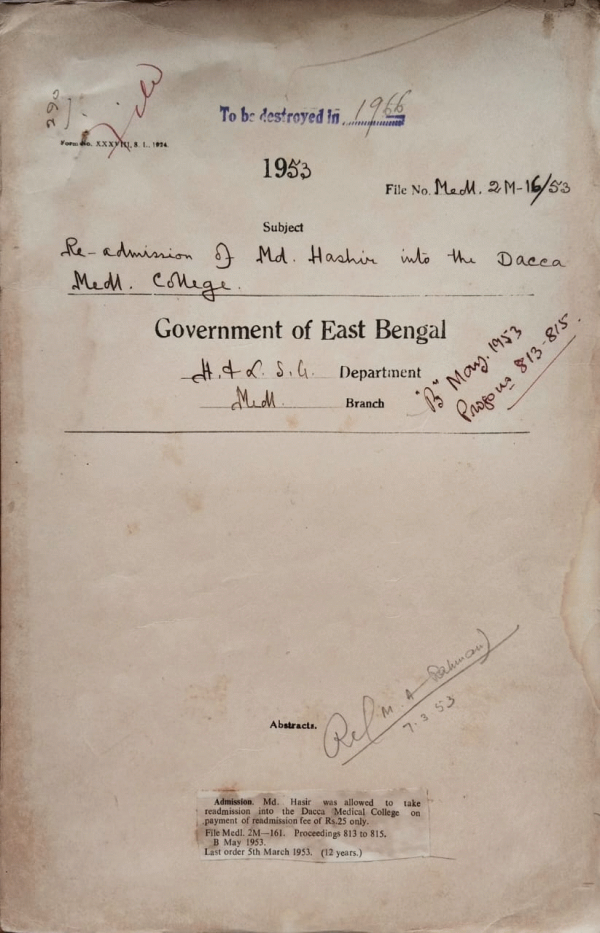 290
To be destroyed in 1966
Form No. XXXVIII. S. 1., 1924.
1953
File No. Medl. 2M-16/53
Subject
Re-admission of Md. Hashir into the Dacca
Medl. College.
Government of East Bengal
H. & L. S. G. Department
Medl. Branch
"B" May. 1953
Progs nos 813-815.
Abstracts.
M. A Rahman
7. 3 53
Admission. Md. Hasir was allowed to take
readmission into the Dacca Medical College on
payment of readmission fee of Rs.25 only.
File Medl. 2M—161. Proceedings 813 to 815.
B May 1953.
Last order 5th March 1953. (12 years.)